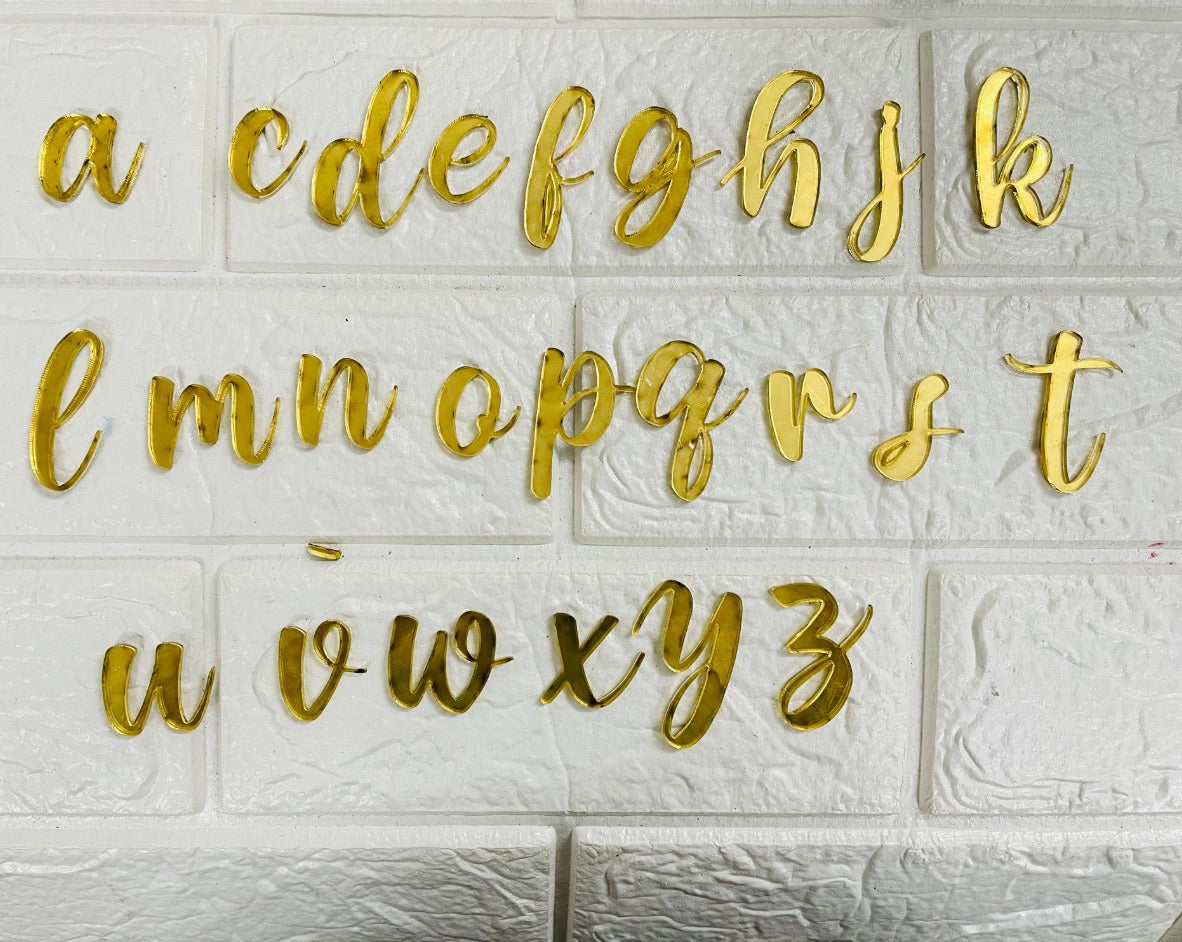 a c d e f g h j k
l m n o p q r s t
u v w x y z